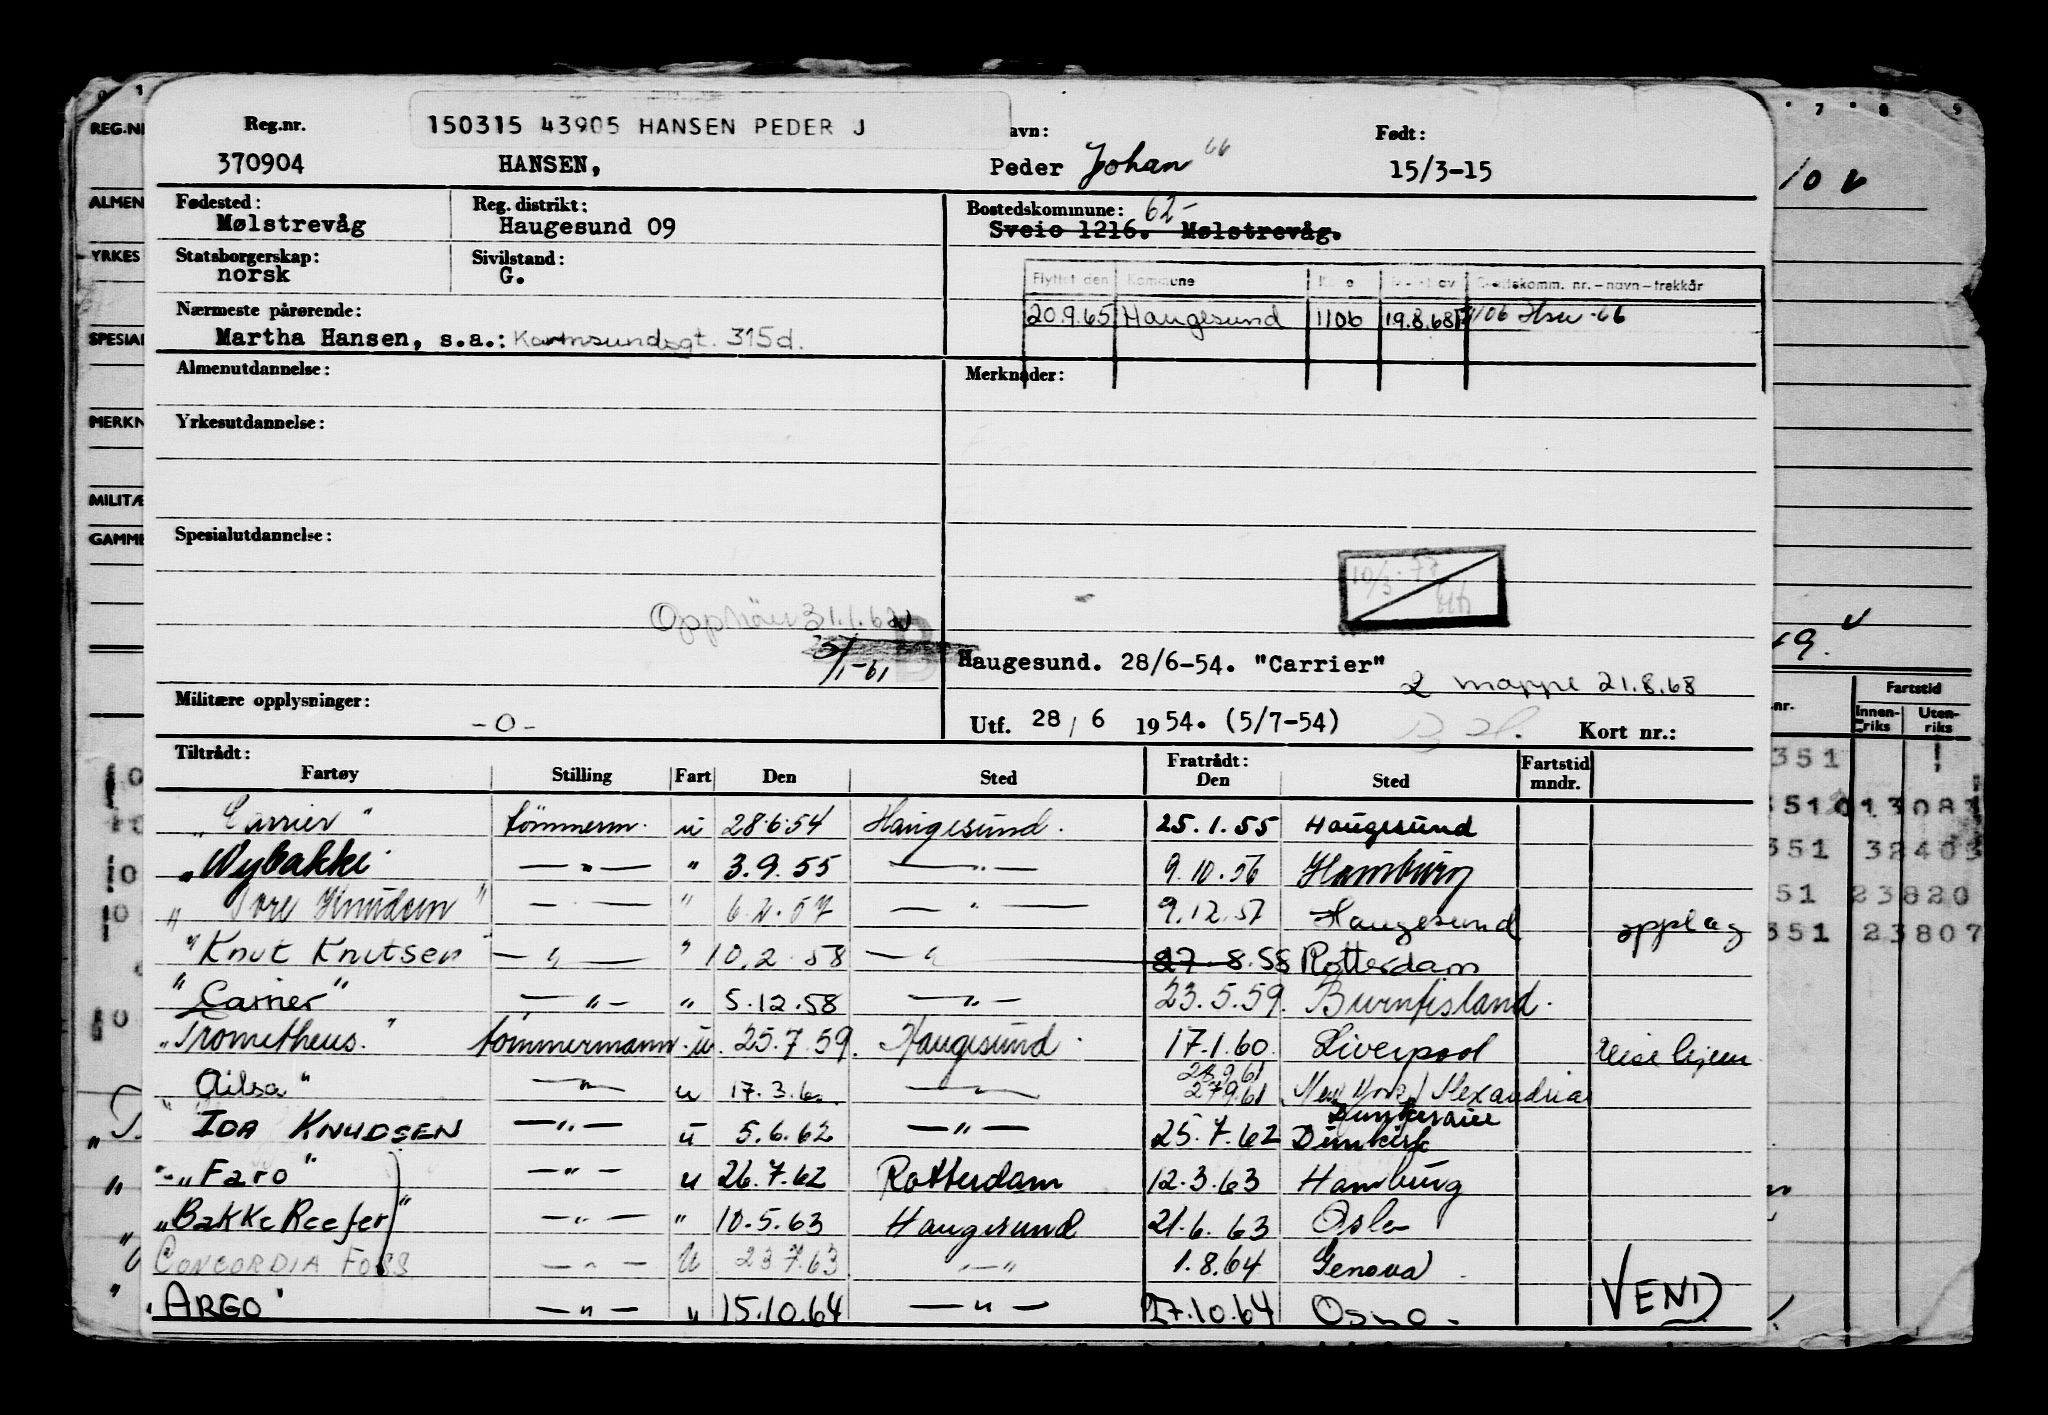 Reg.nr. 150315 43905 HANSEN PEDER J avn: Født:
370904 HANSEN, Peder Johan 66 15/3-15
Fødested: Reg. distrikt: Bostedskommune: 62-
Mølstrevåg Haugesund 09 Sveio 1216. Mølstrevåg.
Statsborgerskap: Sivilstand:
norsk G.
Flyttet den Kommune
20.9.65 Haugesund 1106 19.8.68 1106 -66
Nærmeste pårørende:
Martha Hansen, s.a.: Karmsundsgt. 315d.
Almenutdannelse: Merknader:
Yrkesutdannelse:
Spesialutdannelse:
Opphør 31.1.62
3/1-61
Haugesund. 28/6-54. "Carrier"
2 mappe 21.8.68
Militære opplysninger:
-0-
Utf. 28/6 1954. (5/7-54) Kort nr.:
Tiltrådt: Fratrådt: Fartstid
Fartøy Stilling Fart Den Sted Den Sted mndr.
"Carrier" tømmerm. u 28.6.54 Haugesund. 25.1.55 Haugesund
"Nybakke. — " — " 3.9.55 — " — 9.10.56 Hamburg
" Tore Knudsen " — " — " 6.2.57 — " — 9.12.57 Haugesund opplag
" Knut Knutsen — " — " 10.2.58 — " — 27.8.58 Rotterdam
" Carrier " — " — " 5.12.58 — " — 23.5.59. Burntisland.
"Prometheus." tømmermann u. 25.7.59. Haugesund. 17.1.60. Liverpool
28.9.61
Ailsa " — " — u 17.3.6 — " — 27.9.61 New York / Alexandria
" IDA KNUDSEN — " — u 5.6.62 — " — 25.7.62 Dunkirk
" Faro " — " — u 26.7.62 Rotterdam 12.3.63 Hamburg
"Bakke Reefer" — " — " 10.5.63 Haugesund 21.6.63 Oslo
CONCORDIA FOSS — " — u 23.7.63 — " 1.8.64 Genova
"ARGO" — " — " 15.10.64 — " — 27.10.64 Osno. VEND
REG.NR
ALMEN
YRKES
SPESIAL
MERKN
MILITÆ
GAMME
7 8 9
10 v
19. v
nr. Fartstid
Innen-riks Uten-riks
351
5510 13083
351 32403
51 23820
351 23807